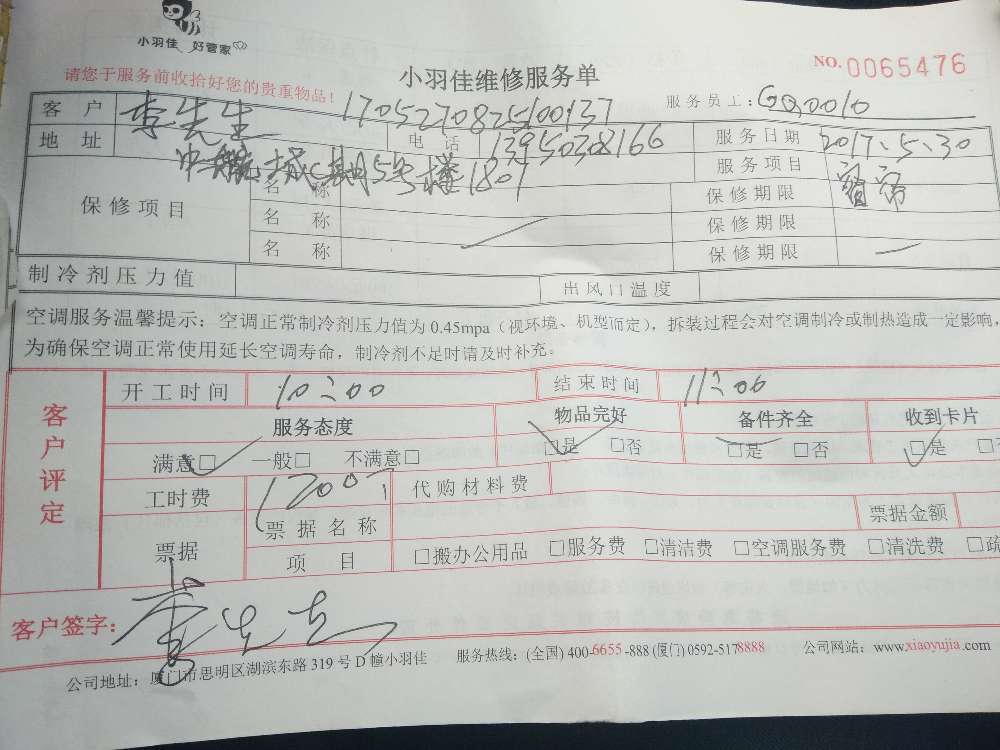 小羽佳 好管家
请您于服务前收拾好您的贵重物品!
小羽佳维修服务单
NO. 0065476
客户 李先生 1705270825100137 服务员工: GQ0010
地址 电话 13950308166 服务日期 2017.5.30
城C期5号楼1801 服务项目
保修项目 名称 保修期限
名称 保修期限
名称 保修期限
制冷剂压力值 出风口温度
空调服务温馨提示:空调正常制冷剂压力值为0.45mpa(视环境、机型而定),拆装过程会对空调制冷或制热造成一定影响,
为确保空调正常使用延长空调寿命,制冷剂不足时请及时补充。
客户评定
开工时间 10:00 结束时间 11:00
服务态度 物品完好 备件齐全 收到卡片
满意□ 一般□ 不满意□ □是 □否 □是 □否 □是 □否
工时费 代购材料费
票据 票据名称 票据金额
项目 □搬办公用品 □服务费 □清洁费 □空调服务费 □清洗费 □疏
客户签字: 李先生
公司地址:厦门市思明区湖滨东路319号D幢小羽佳 服务热线:(全国)400-6655-888(厦门)0592-5178888 公司网站:www.xiaoyujia.com